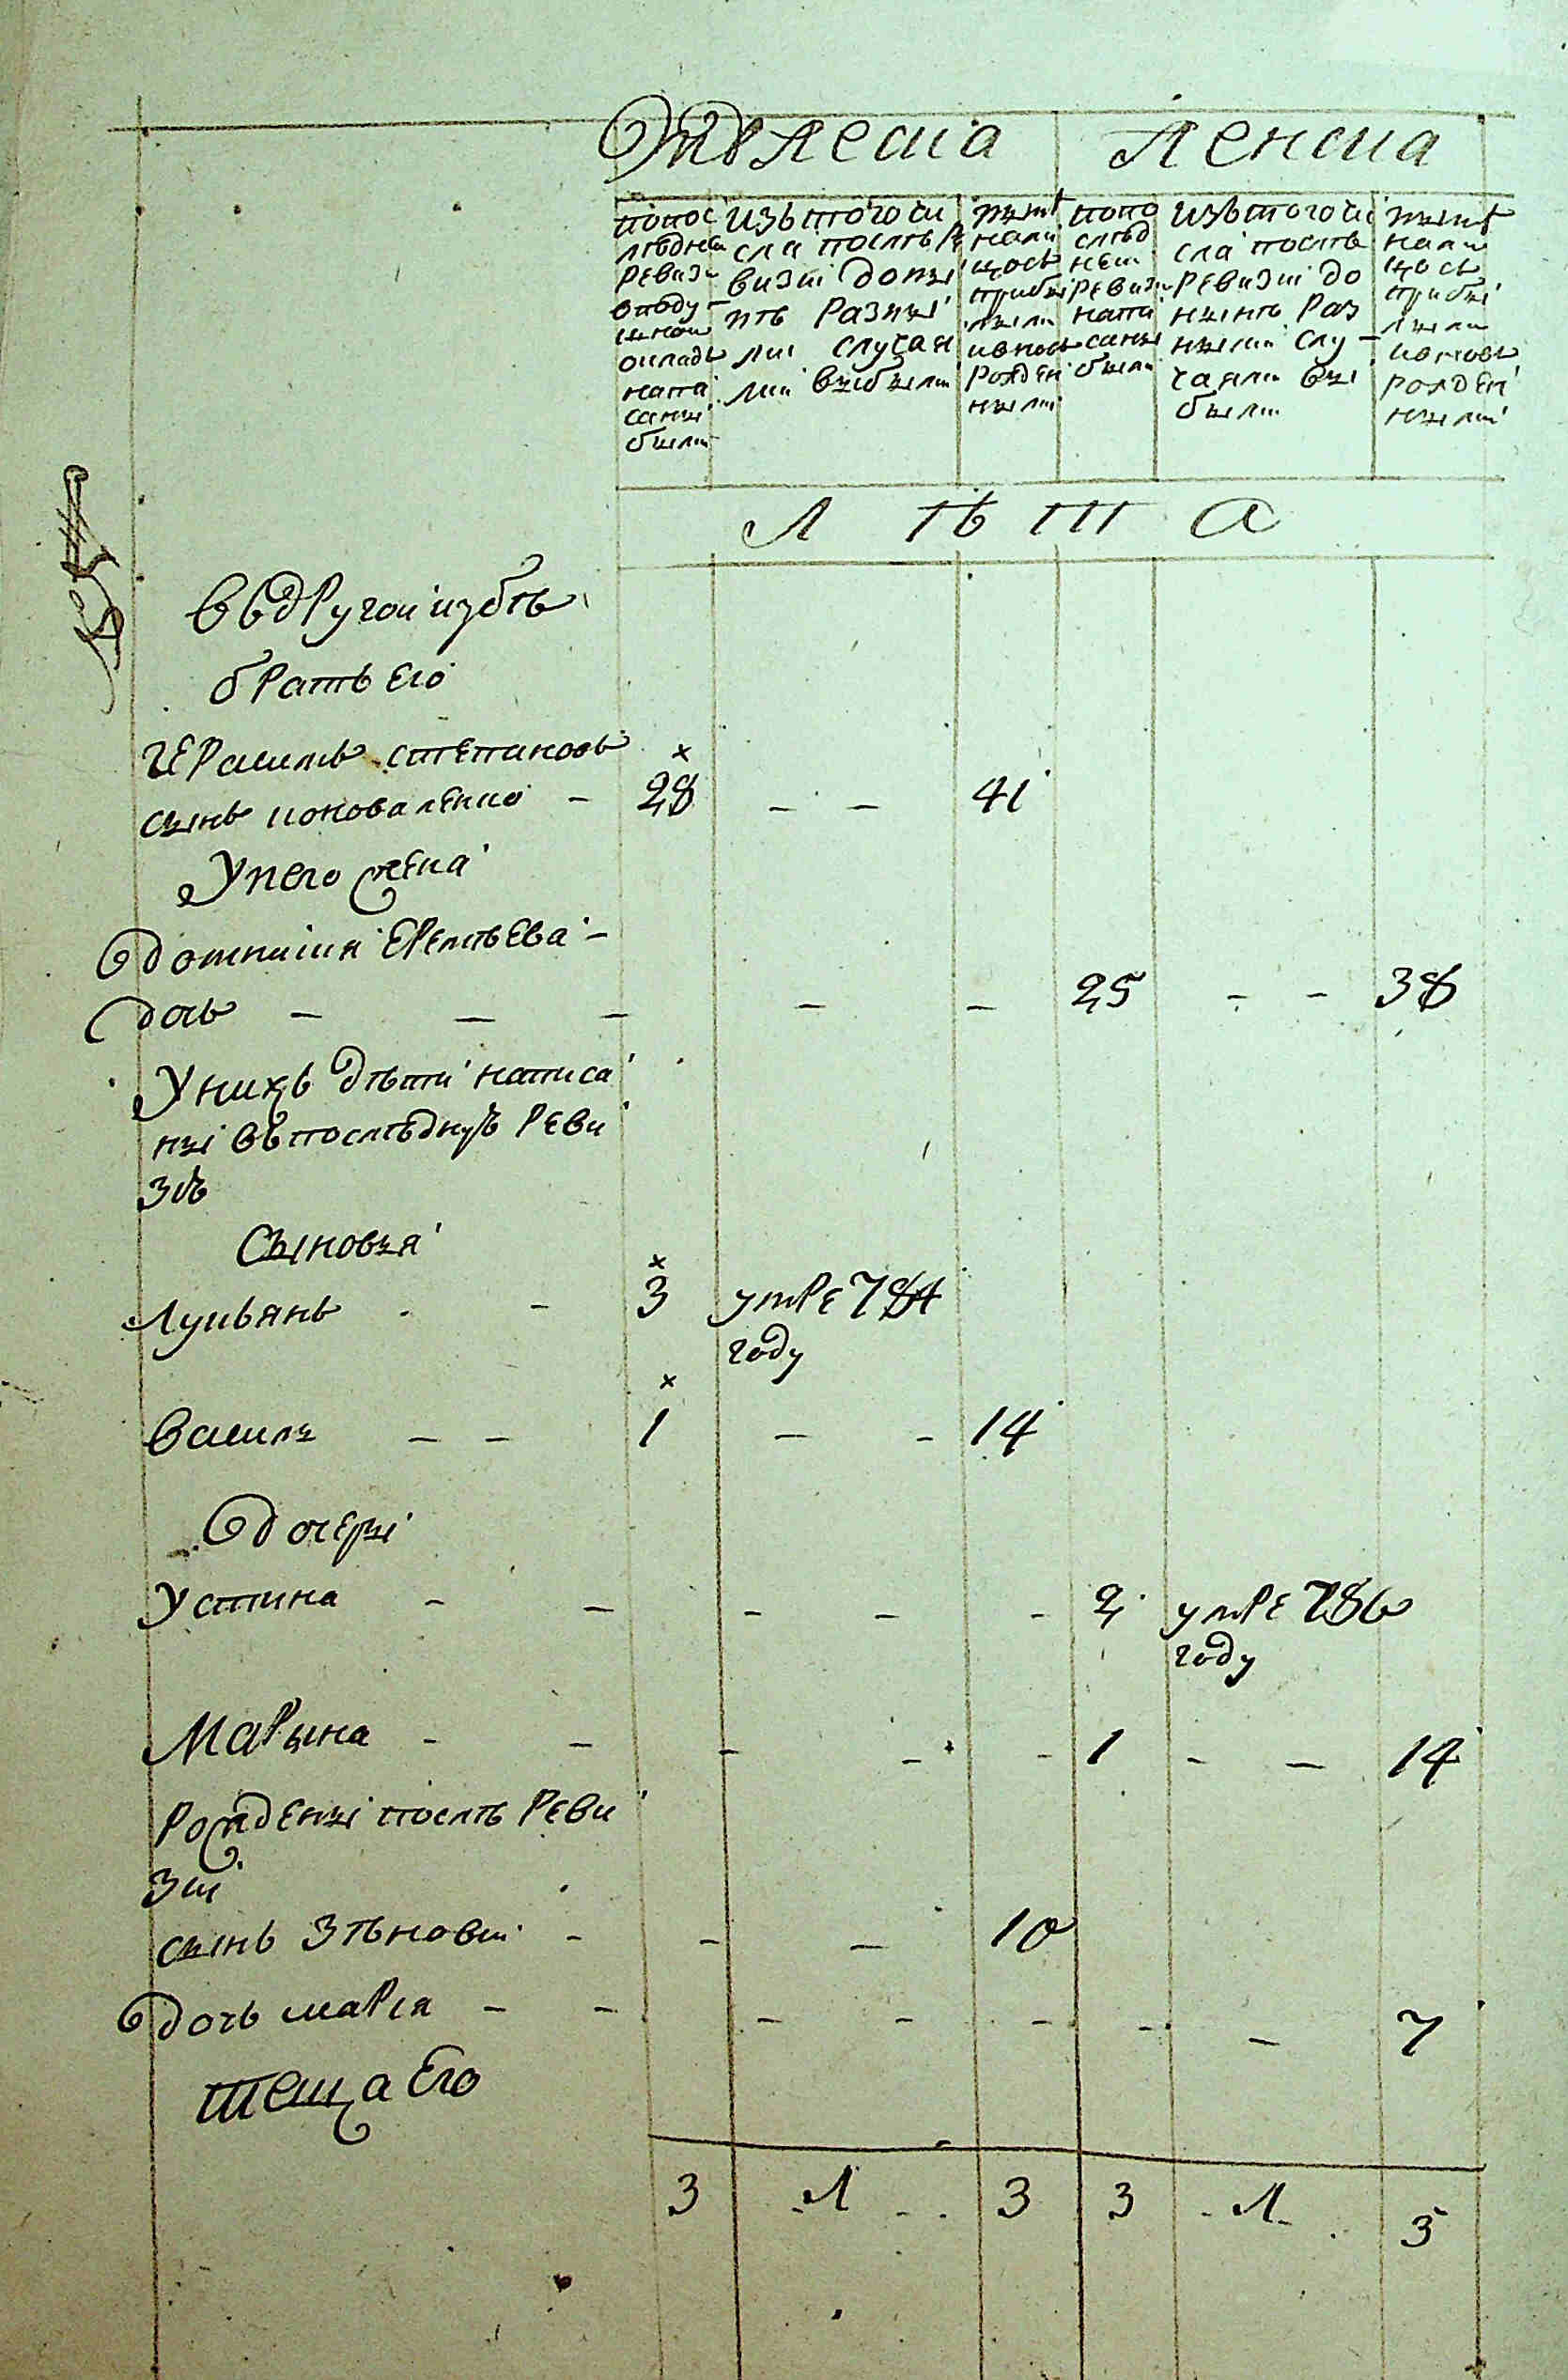 Мужеска Женска
попос
лѣднеи
ревизи
вподу
шнои
окладъ
напи
саны
были
изътогочи
сла послѣ ре
визіи доны
нѣ разны
ми случая
ми выбыли
нынѣ
нали
цось
прибы
лыми
ивновь
рожден
ными
попо
слѣд
неи
ревизи
напи
саны
были
изътогочи
сла послѣ
ревизіи до
нынѣ раз
ными слу
чаями вы
были
нынѣ
нали
цось
прибы
лыми
ивновь
рожден
ными
Л ѣ т а
въдругои избѣ
братъ его
Герасимъ степановъ
сынъ коноваленко - 28 - - 41
Унего жена
домникия Еремѣева -
дочь - - - - - 25 - - 38
Унихъ дѣти написа
ны въпослѣднуѣ реви
зіѣ
Сыновья
Лукьянъ - 3 умре 784
году
василь - - 1 - - 14
дочеры
Устина - - - - - 2 умре 786
году
Марына - - - - - 1 - - 14
рождены послѣ реви
зіи
сынъ Зѣновіи - - - 10
дочь марія - - - - - - - 7
теща Его
3 1 3 3 1 3